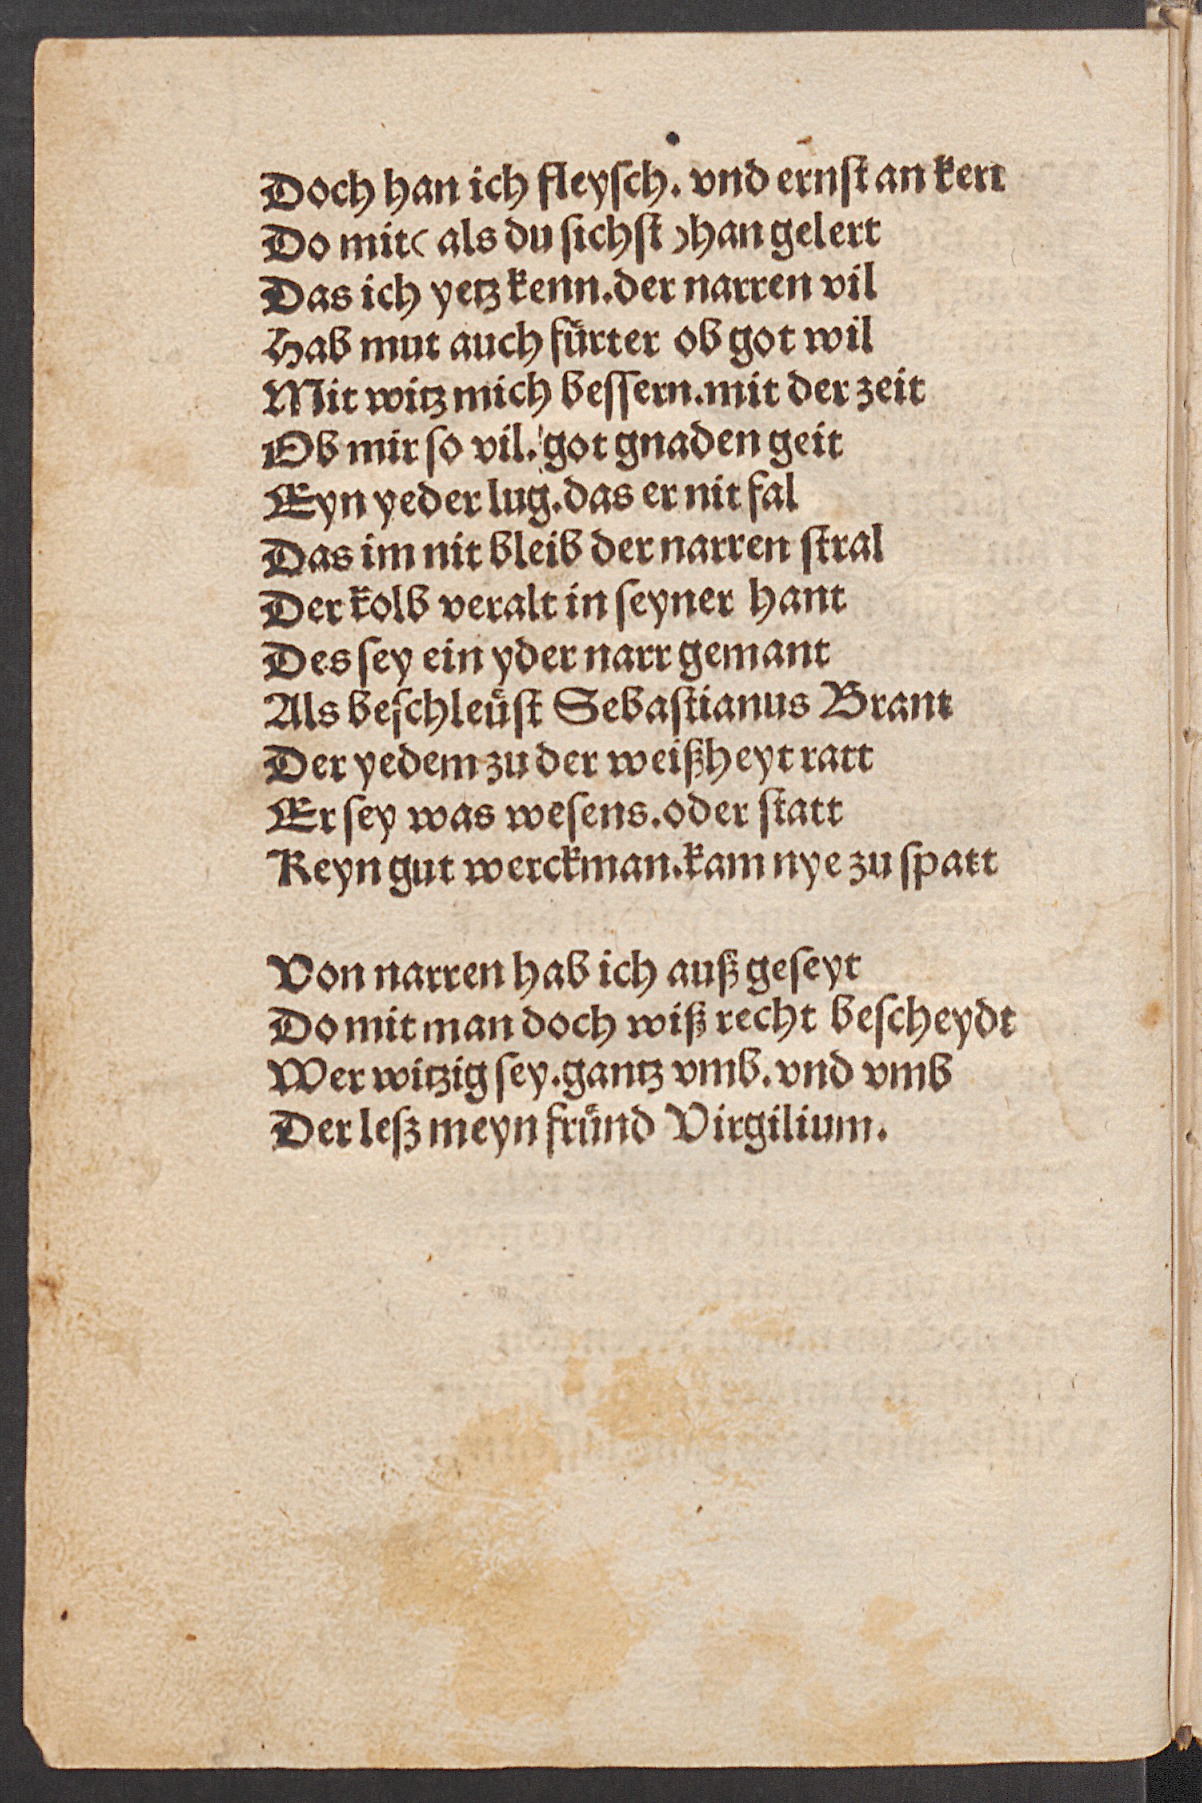 Doch han ich fleyſch. vnd ernſt an kert
Do mit( als du ſichſt )han gelert
Das ich yetz kenn.der narren vil
Hab mut auch fürter ob got wil
Mit witz mich beſſern.mit der zeit
Ob mir ſo vil. got gnaden geit
Eyn yeder lug.das er nit fal
Das im nit bleib der narren ſtral
Der kolb veralt in ſeyner hant
Des ſey ein yder narr gemant
Als beſchleüſt Sebaſtianus Brant
Der yedem zu der weißheyt ratt
Er ſey was weſens.oder ſtatt
Keyn gut werckman.kam nye zu ſpatt

Von narren hab ich auß geſeyt
Do mit man doch wiß recht beſcheydt
Wer witzig ſey.gantz vmb.vnd vmb
Der leſz meyn fründ Virgilium.